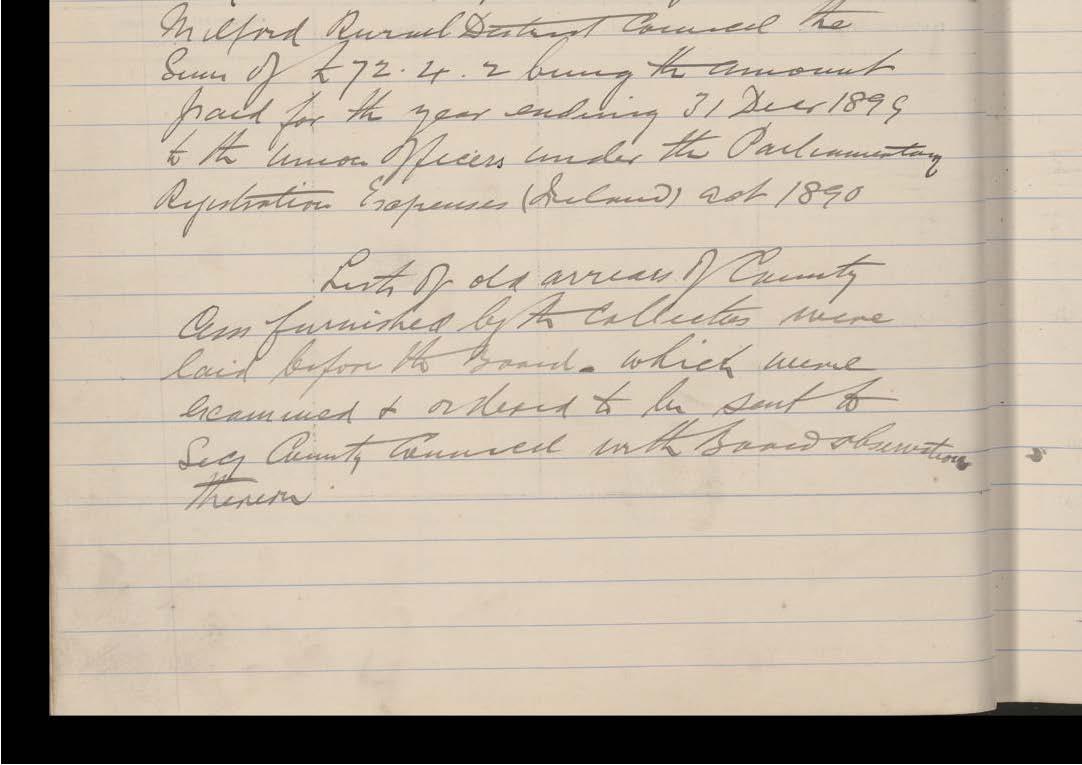 Milford Rural District Council the
Sum of £72.4.2 being the amount
paid for the year ending 31 Decr 1899
to the Union Officers under the Parliamentary
Registration Expenses (Ireland) act 1890
Lists of old arrears of County
Cess furnished by the Collectors were
laid before the Board - which were
examined & ordered to be sent to
Secy County Council with Board observations
thereon